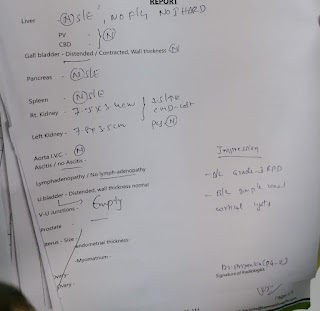 REPORT
Liver - (N) S/E, NO F/L, NO IHBRD
PV -
CBD - } (N)
Gall bladder - Distended / Contracted, Wall thickness (N)
Pancreas - (N) S/E
Spleen - (N) S/E
Rt. Kidney -
Left Kidney - 7.8 x 3.5 cm
PCS (N)
Aorta I.V.C. - (N)
Ascitis / no Ascitis -
Lymphadenopathy / No lymph-adenopathy
U.bladder - Distended, wall thickness normal
V-U Junctions - Empty
Prostate
Uterus - Size
endometrial thickness-
-Myomatrium -
Ovary-
Ovary -
Impression
- B/L Grade-I RPD
- B/L simple renal
cortical cysts
Signature of Radiologist